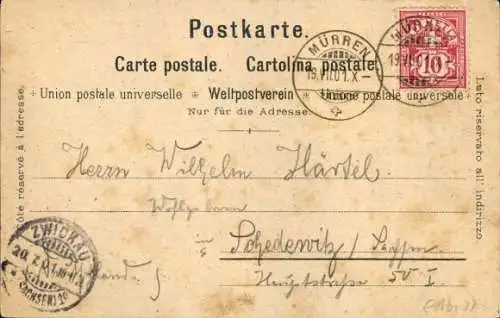 Postkarte.
Carte postale. Cartolina postale.
Union postale universelle Weltpostverein Union postale universelle
Nur für die Adresse.
Côté réservé à l'adresse.
Lato riservato all' indirizzo
MÜRREN
19.VII.01.X-
MÜRREN
10
Herrn Wilhelm Härtel
Wohlgeboren
in Schedewitz/Sachsen
Hauptstrasse 50 I
ZWICKAU
(SACHSEN)